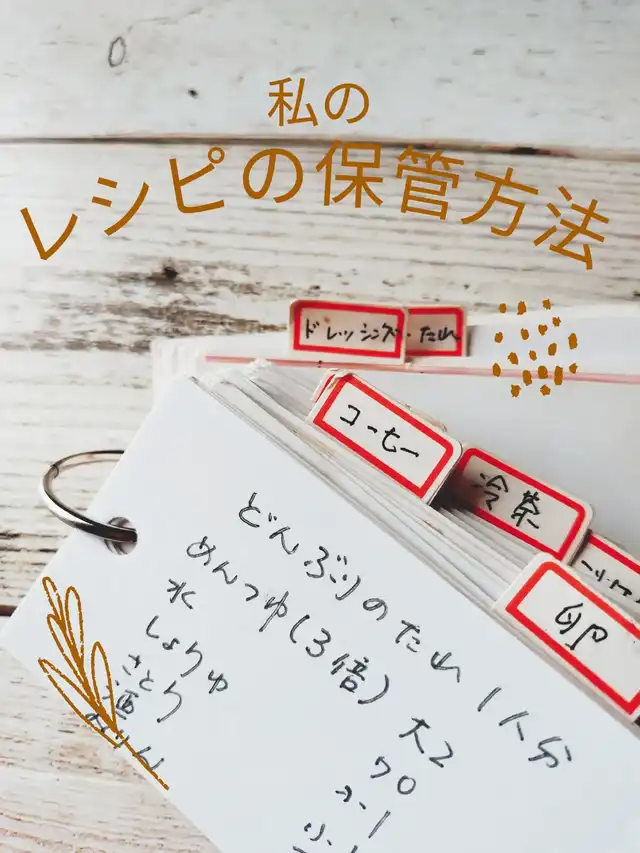 私の
レシピの保管方法
ドレッシング・たれ
コーヒー
冷茶
卵
どんぶりのたれ 1人分
めんつゆ(3倍) 大2
水 70
しょうゆ 小1
さとう
酒
みりん